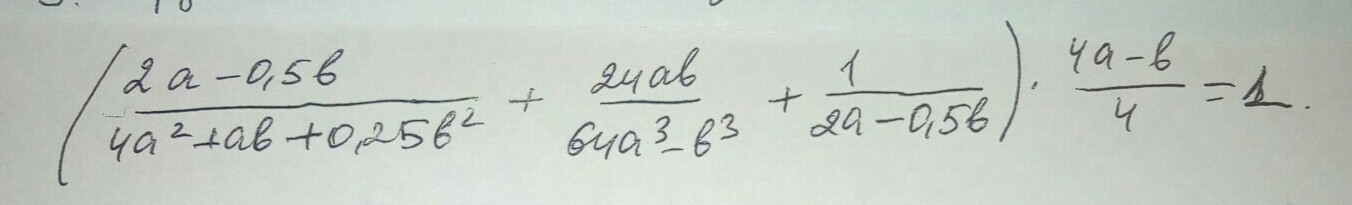 ( (2a - 0,5b)/(4a² + ab + 0,25b²) + 24ab/(64a³ - b³) + 1/(2a - 0,5b) ) · (4a - b)/4 = 1.